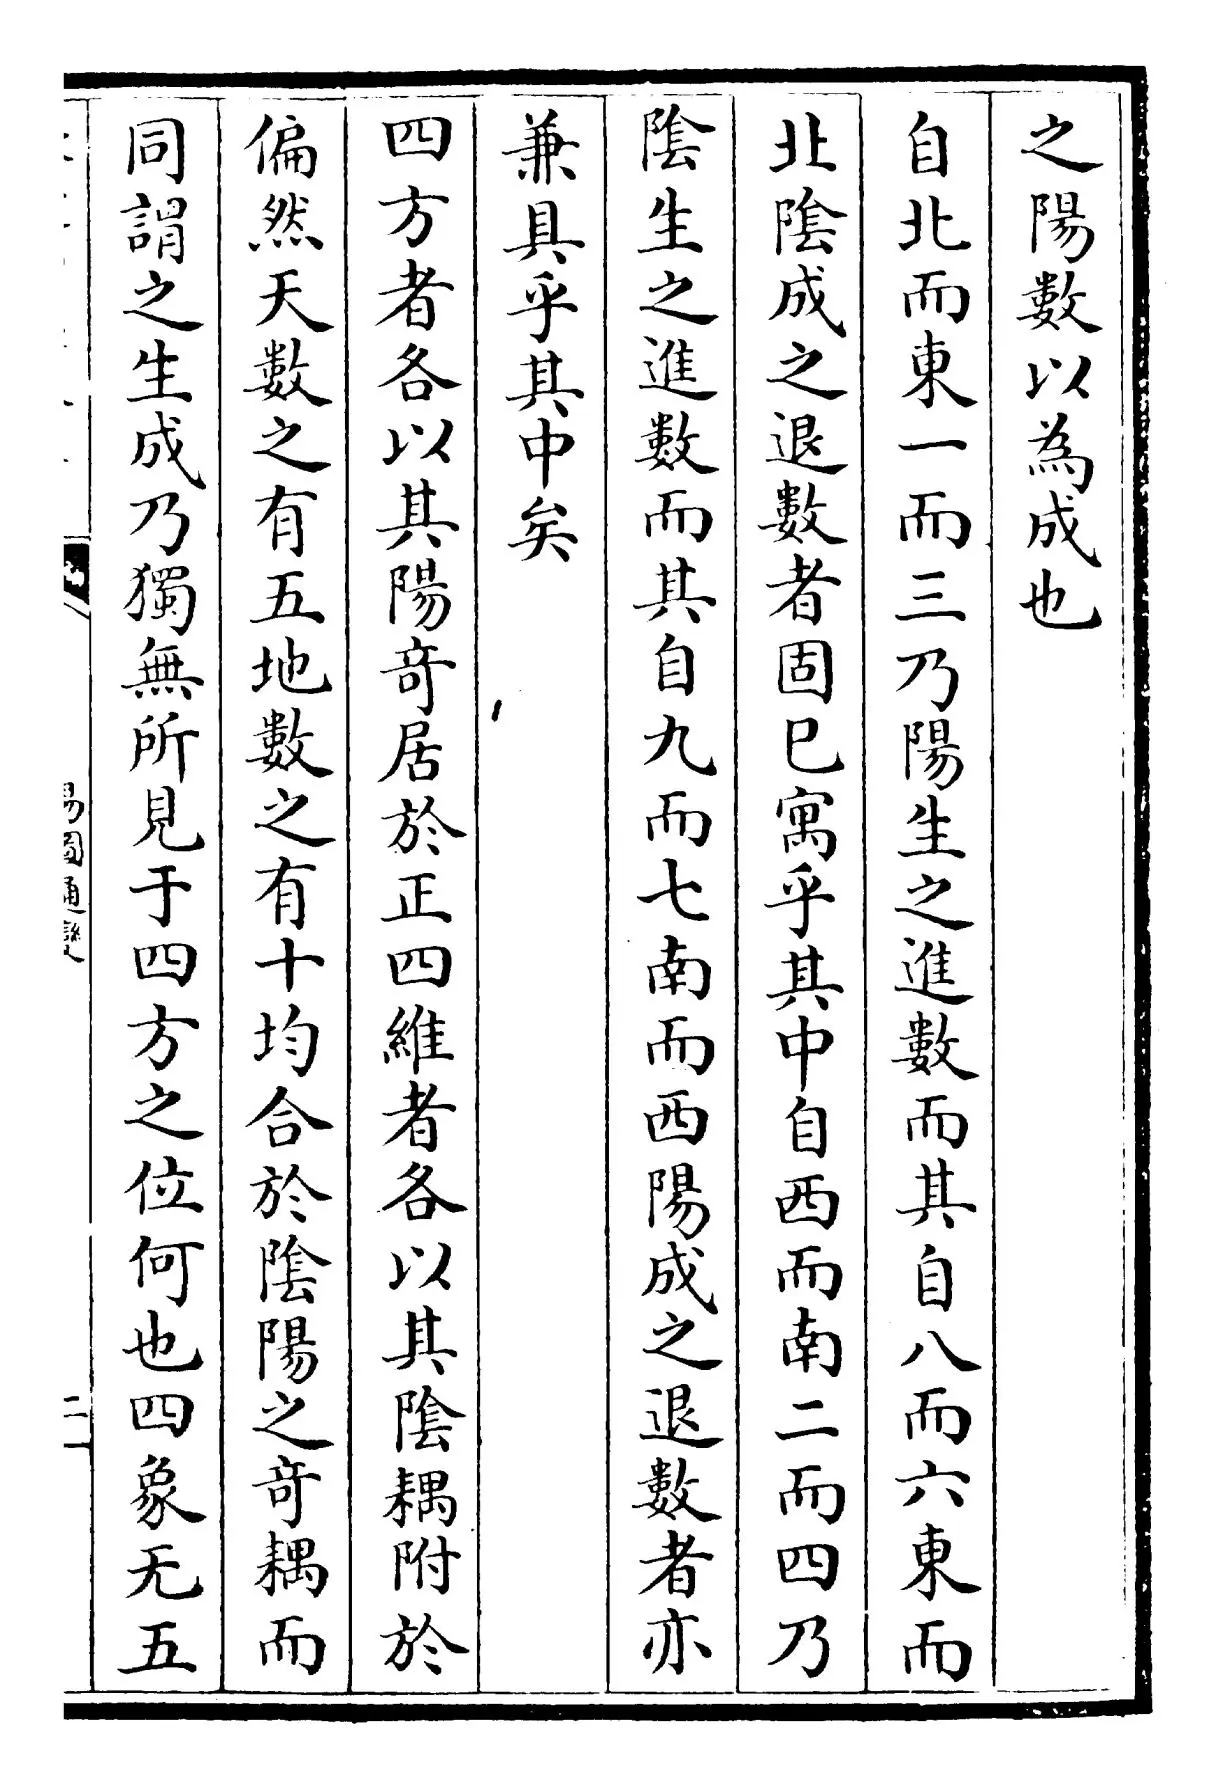 之陽數以為成也
自北而東一而三乃陽生之進數而其自八而六東而
北陰成之退數者固已寓乎其中自西而南二而四乃
陰生之進數而其自九而七南而西陽成之退數者亦
兼具乎其中矣
四方者各以其陽竒居於正四維者各以其陰耦附於
偏然天數之有五地數之有十均合於陰陽之竒耦而
同謂之生成乃獨無所見于四方之位何也四象无五
易圖通變
二